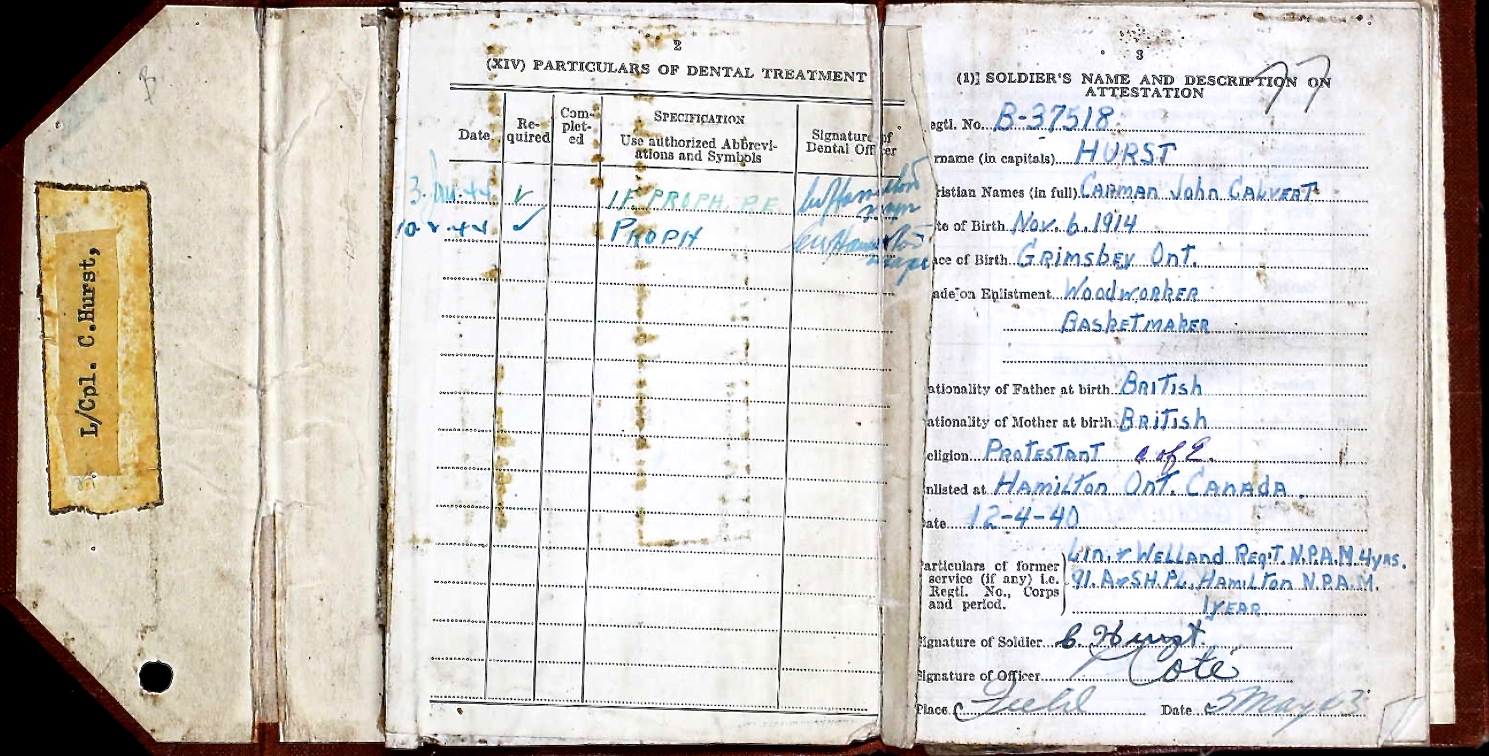 L/Cpl. C.Hurst,
2
(XIV) PARTICULARS OF DENTAL TREATMENT
Date
Re-
quired
Com-
plet-
ed
SPECIFICATION
Use authorized Abbrevi-
ations and Symbols
Signature of
Dental Officer
3 44 ✓ I.F. PROPH. P.E.
10 44 ✓ PROPH
3
77
(1) SOLDIER'S NAME AND DESCRIPTION ON
ATTESTATION
egtl. No. B-37518
rname (in capitals) HURST
ristian Names (in full) CARMAN John CALVERT
te of Birth Nov. 6. 1914
ace of Birth GRIMSBEY ONT.
ade on Enlistment WOODWORKER
BASKETMAKER
ationality of Father at birth BRITISH
ationality of Mother at birth BRITISH
eligion PROTESTANT C of E.
nlisted at HAMILTON ONT. CANADA.
ate 12-4-40
articulars of former
service (if any) i.e.
Regtl. No., Corps
and period.
LIN. & WELLAND REGT. N.P.A.M. 4yrs.
91. A&SH. PL. HAMILTON N.P.A.M.
1 YEAR
ignature of Soldier C. Hurst.
ignature of Officer Coté
Place Field Date 5 May 43